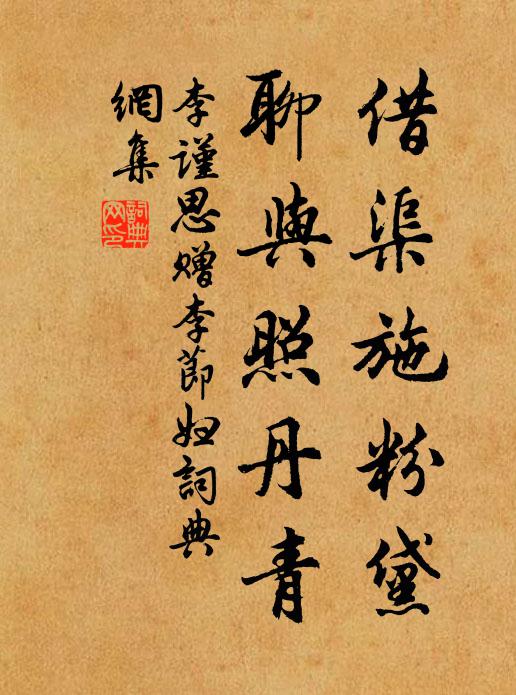 借渠施粉黛
聊與照丹青
李謹思贈李節婦詞典
網集
詞典
网印